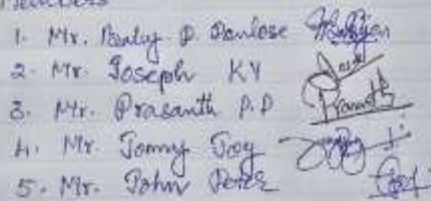 Members
1. Mr. P. Paulose
2. Mr. Joseph KY
3. Mr. Prasanth P.P
4. Mr. Tomy Joy
5. Mr. John Peter